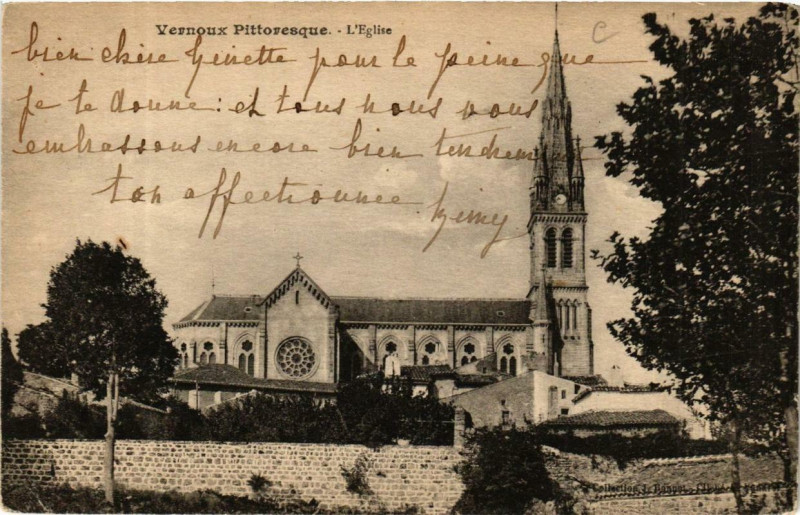 Vernoux Pittoresque. - L'Eglise
bien chère Ginette pour le peine que
je te donne: et tous nous vous
embrassons encore bien tendrem
ton affectionnee
Collection J.